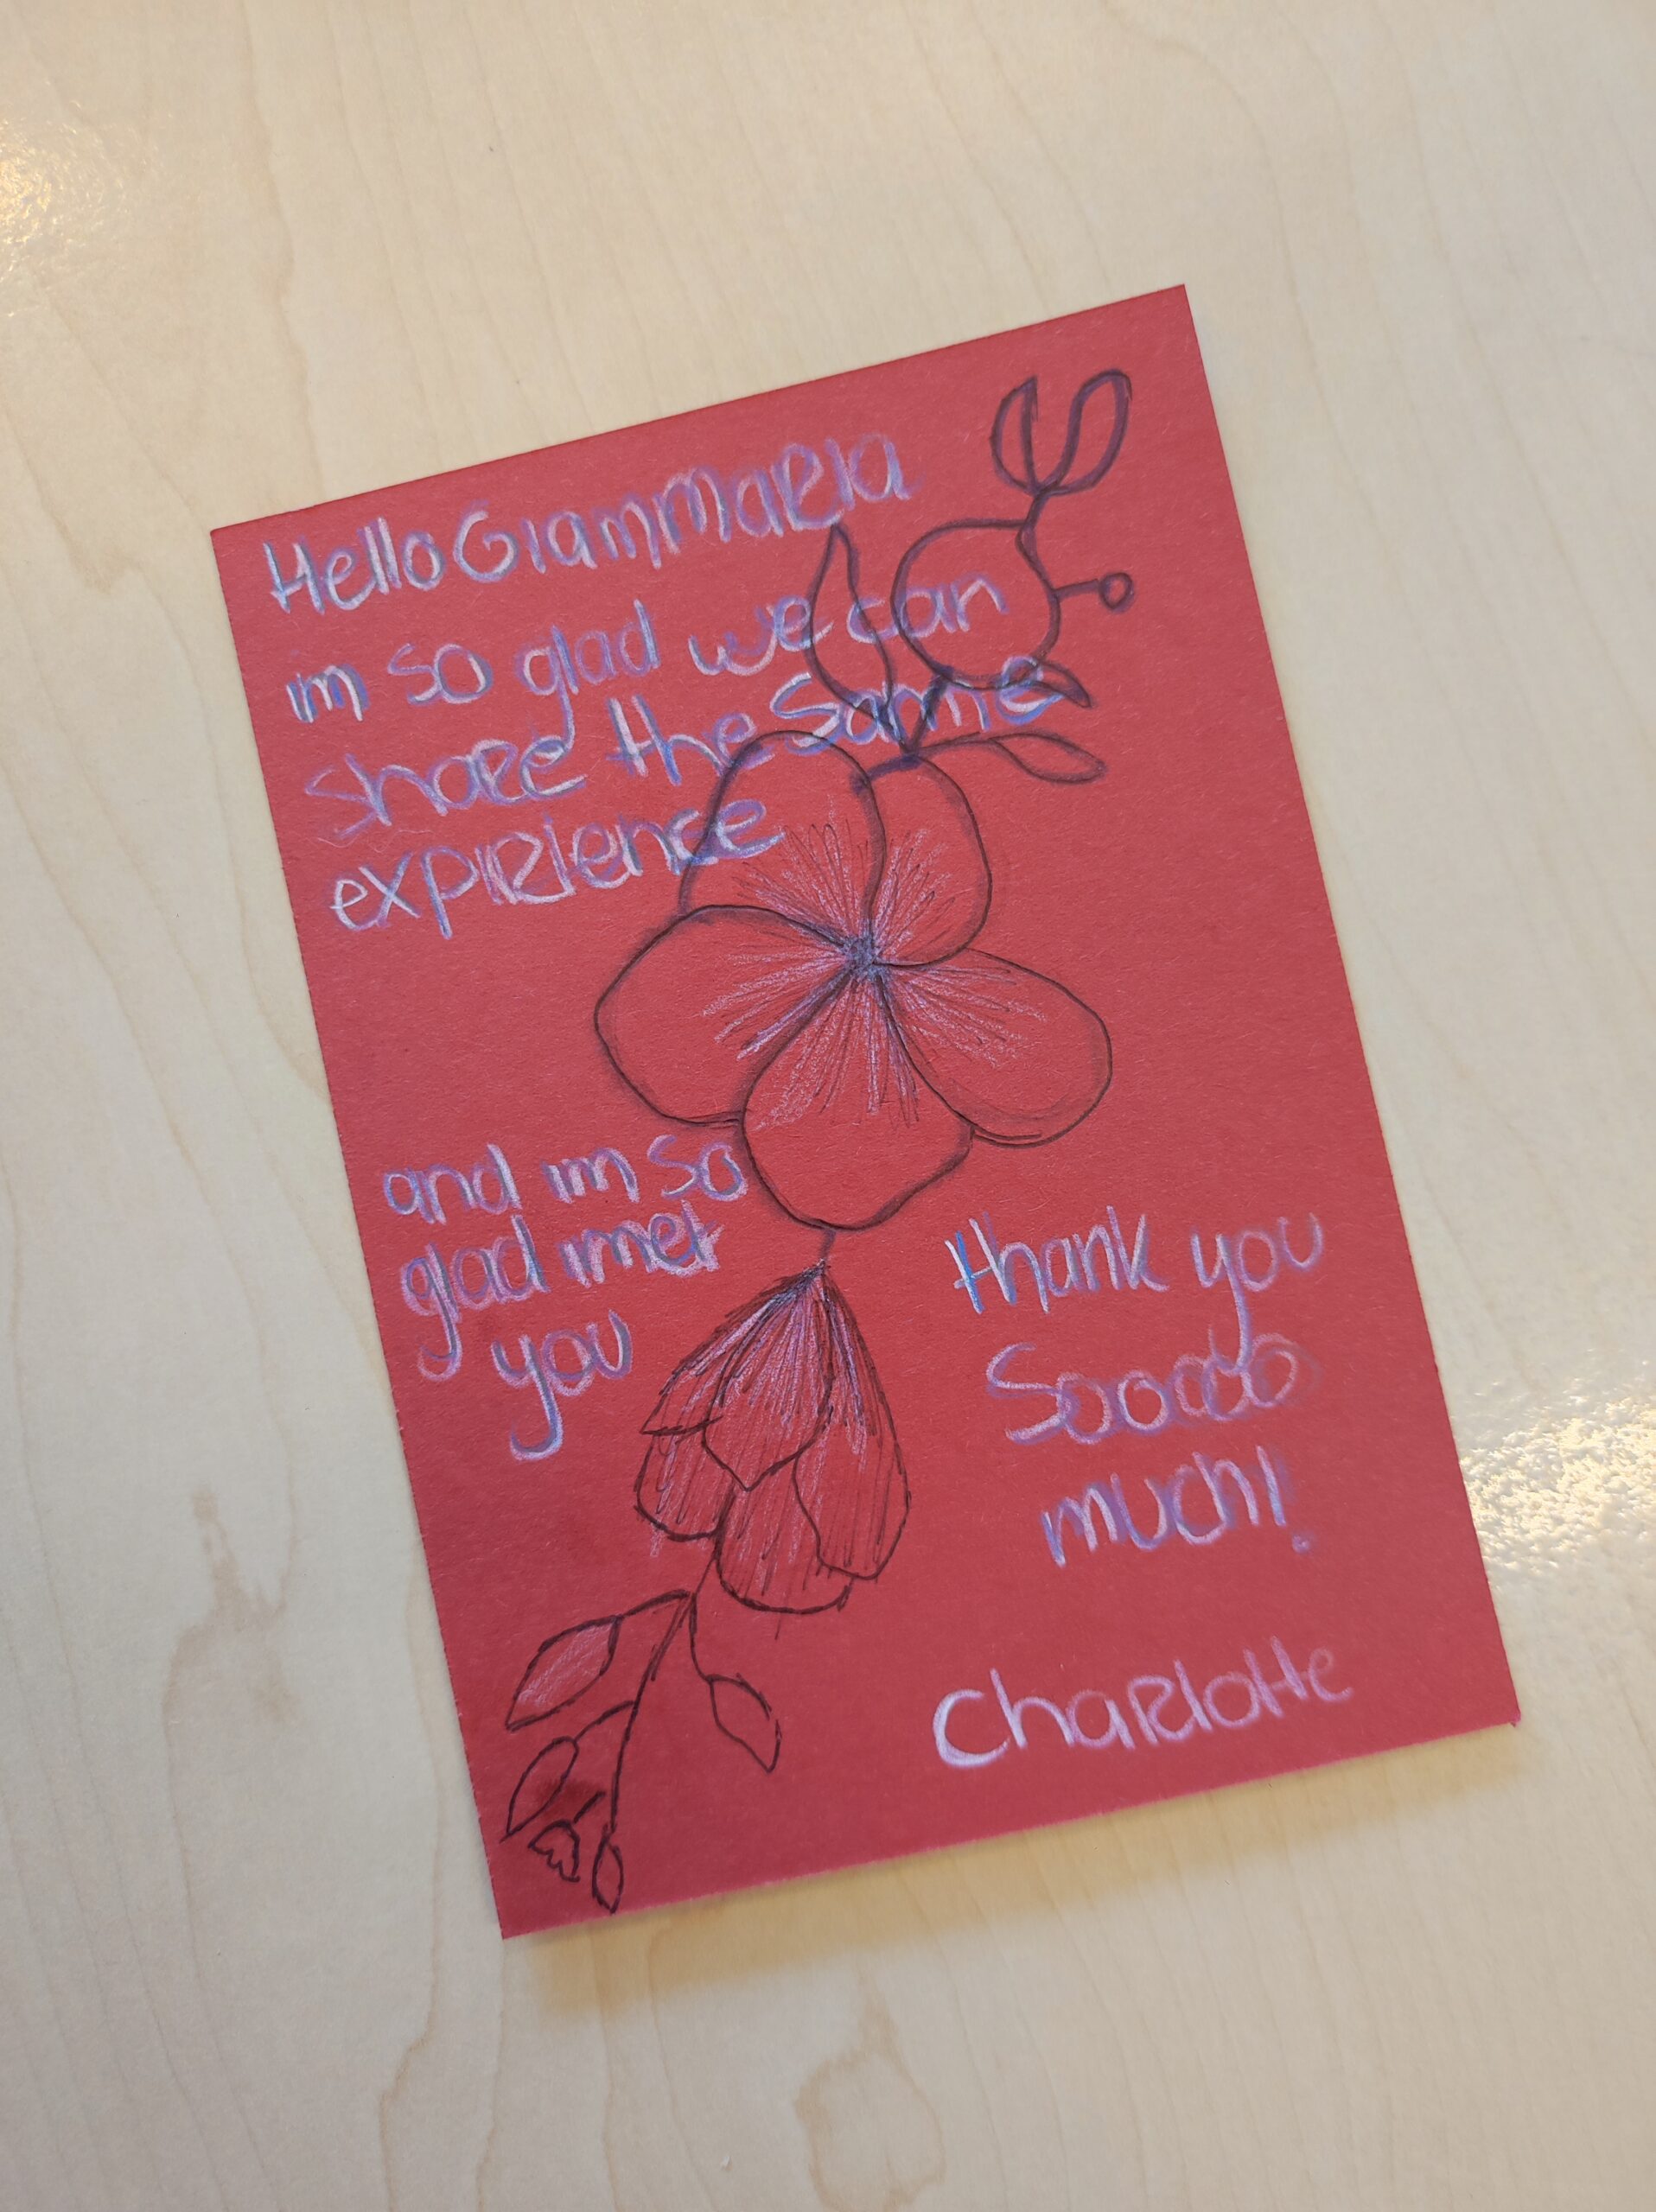 Hello GianMaRia
im so glad we can
shaRe the Same
expiRience
and im so
glad i met
you
thank you
Sooooo
much!
ChaRlotte